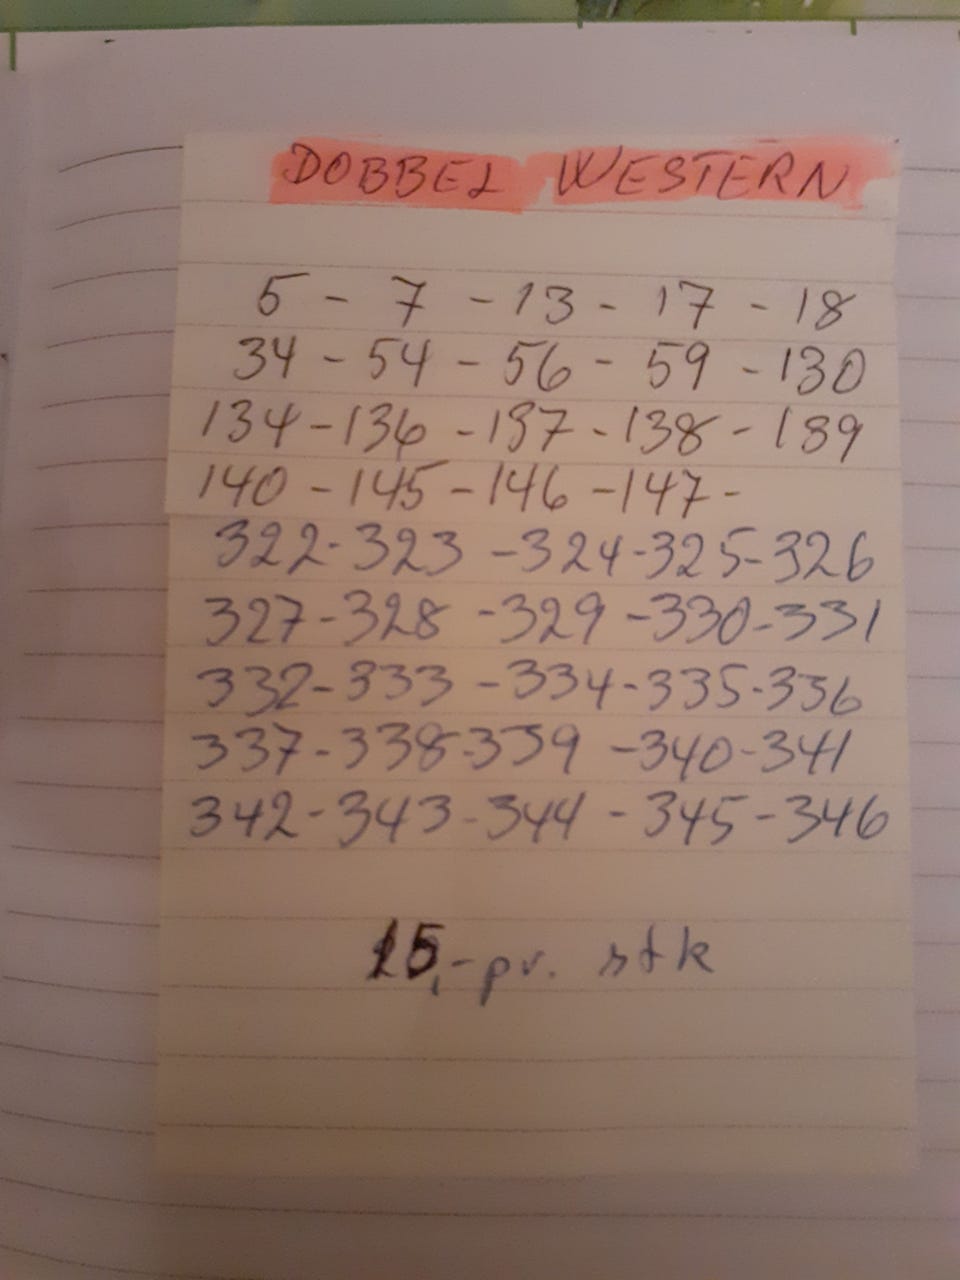 DOBBEL WESTERN
5 - 7 - 13 - 17 - 18
34 - 54 - 56 - 59 - 130
134 - 136 - 137 - 138 - 139
140 - 145 - 146 - 147 -
322 - 323 - 324 - 325 - 326
327 - 328 - 329 - 330 - 331
332 - 333 - 334 - 335 - 336
337 - 338 - 339 - 340 - 341
342 - 343 - 344 - 345 - 346
15,- pr. stk